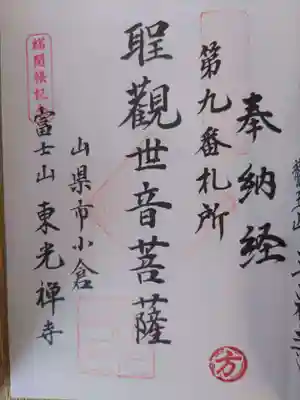 奉納経
第九番札所
聖觀世音菩薩
山県市小倉
富士山 東光禅寺
方